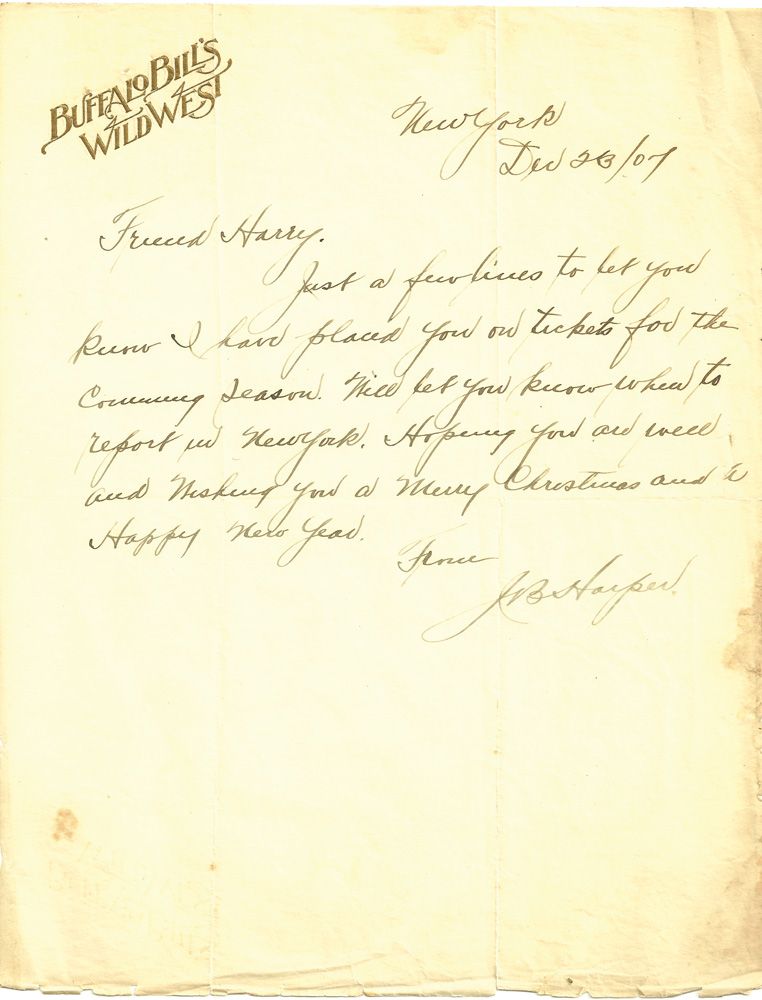 BUFFALO BILL'S
WILD WEST
New York
Dec 23/07
Friend Harry.
Just a few lines to let you
know I have placed you on tickets for the
Comming Season. Will let you know when to
report in New York. Hoping you are well
and Wishing you a Merry Christmas and a
Happy New Year.
From
J B Harper.